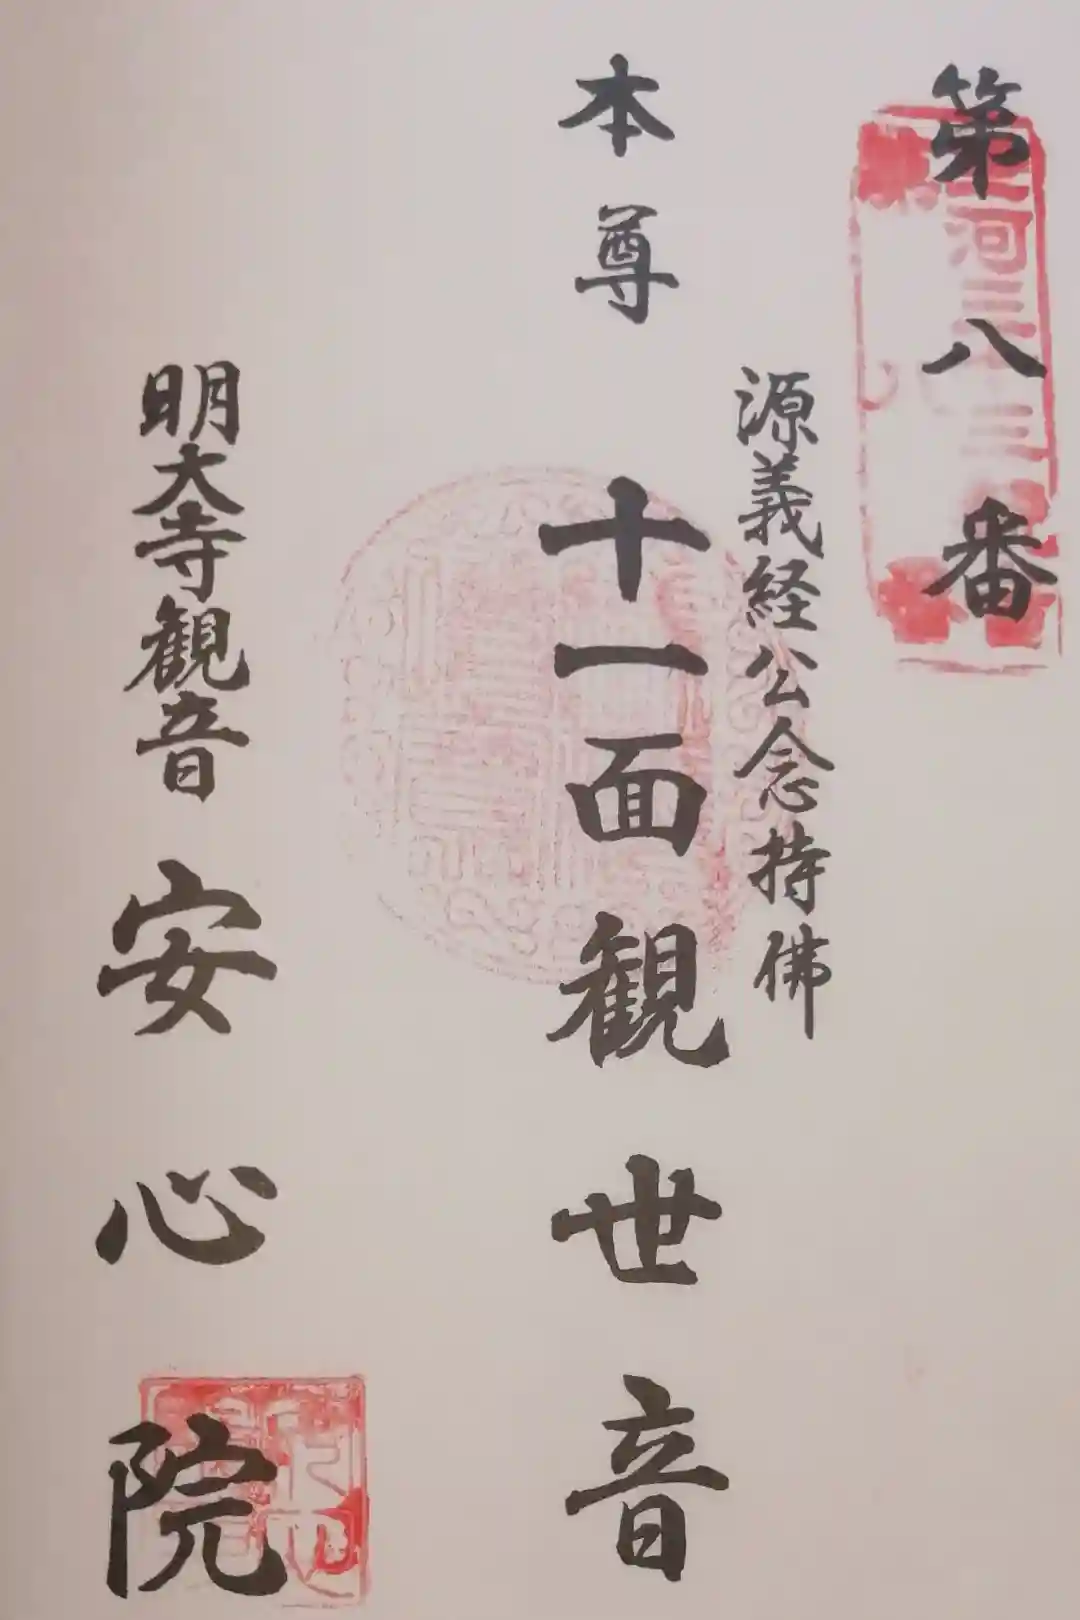 第八番
河三十三
源義経公念持佛
本尊 十一面観世音
明大寺観音 安心院